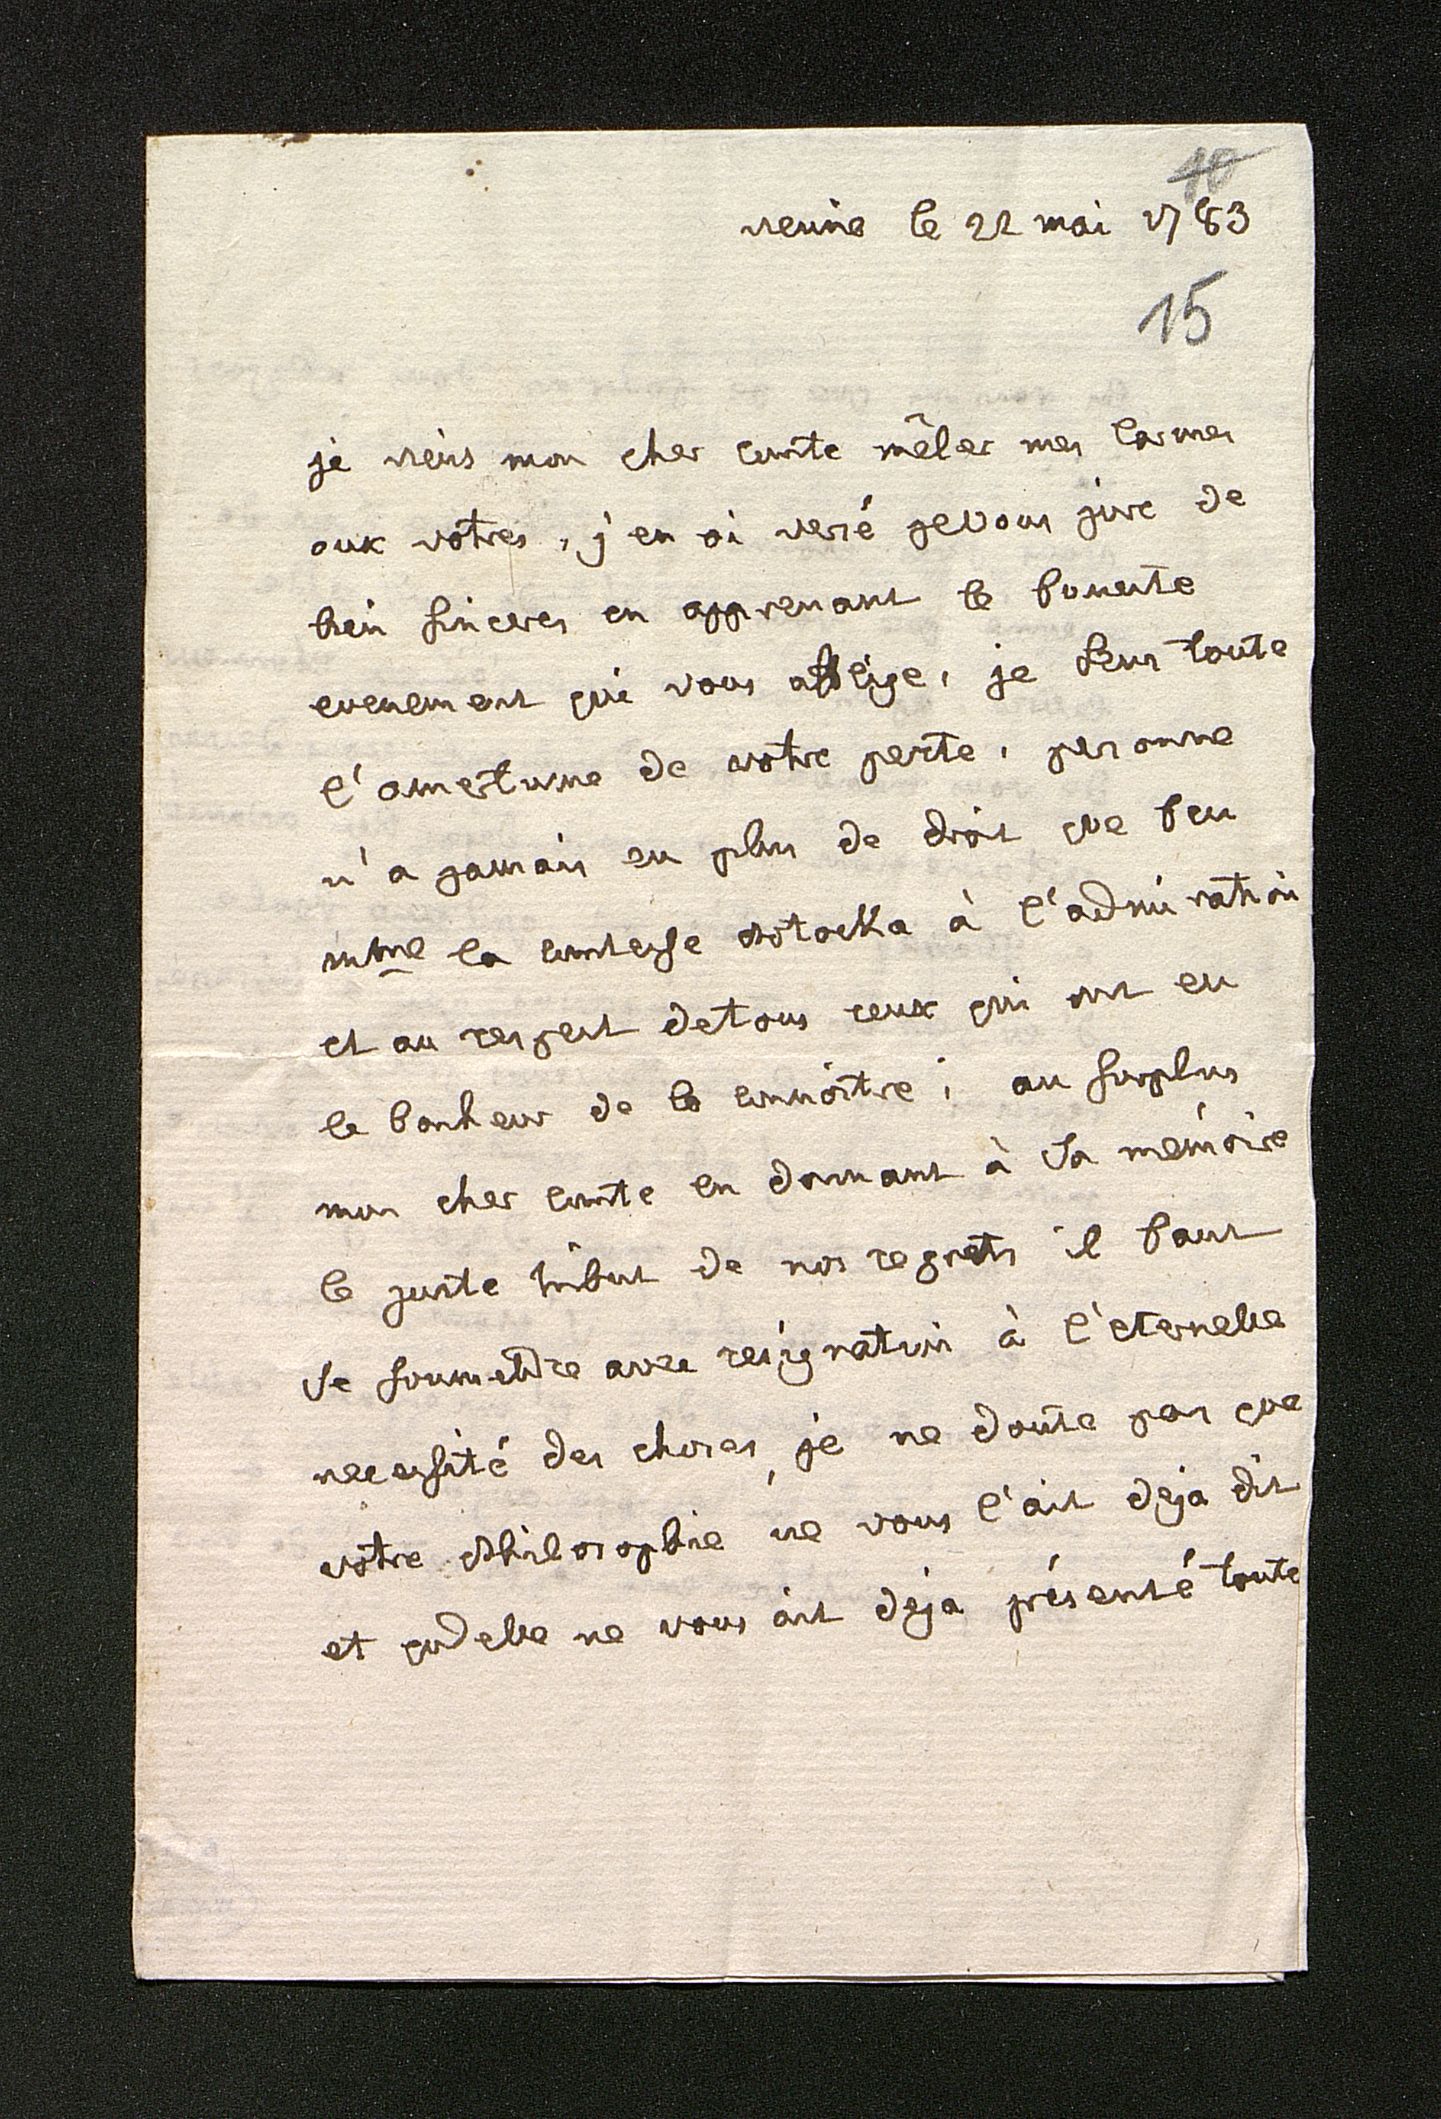 10
vienne le 22 mai 1783
15
je viens mon cher comte mêler mes larmes
aux vôtres, j'en ai versé je vous jure de
bien sinceres en apprenant le funeste
evenement qui vous afflige, je sens toute
l'amertume de votre perte, personne
n'a jamais eu plus de droit que feu
mme la comtesse ossolinska à l'admiration
et au respect de tous ceux qui ont eu
le bonheur de la connoître; au surplus
mon cher comte en donnant à sa mémoire
le juste tribut de nos regrets il faut
se soumettre avec resignation à l'eternelle
necessité des choses, je ne doute pas que
vôtre philosophie ne vous l'ait deja dit
et qu'elle ne vous ait deja présenté toute